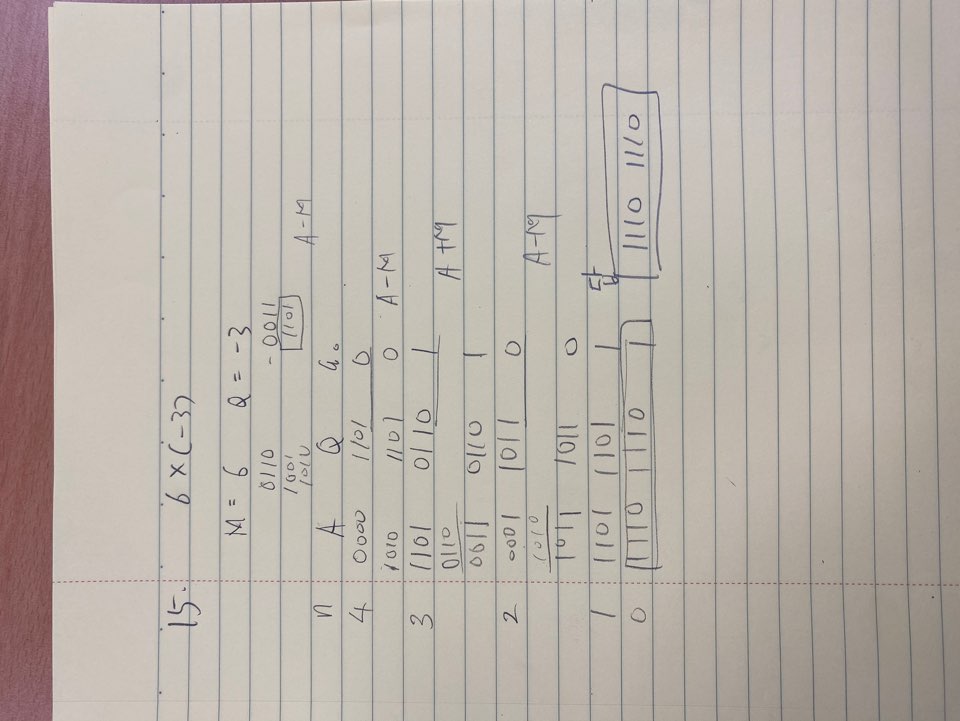 15. 6 × (-3)
M = 6 Q = -3
0110 - 0011
1001 1101
1010 A-M
n A Q Q₀
4 0000 1101 0
1010 1101 0 A-M
3 1101 0110 1
0110 A+M
0011 0110 1
2 0001 1011 0
1010 A-M
1011 1011 0
1 1101 1101 1 답
0 1110 1110 1 1110 1110